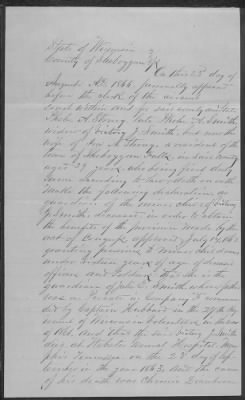 State of Wisconsin
County of Sheboygan
On this 23 day of
August A.D. 1866, personally appeared
before the clerk of the
court within and for said county and state
Phebe A. Strong late Phebe A. Smith
widow of J. Smith, but now the
wife of Strong, a resident of the
town of Sheboygan Falls in said county
aged 39 years, who being first duly
sworn according to law, doth on oath
make the following declaration as
guardian of the minor child of
J. Smith, deceased, in order to obtain
the benefits of the provision made by the
act of Congress approved July 14, 1862
granting pensions to minor children
under sixteen years of age of deceased
officers and soldiers that she is the
guardian of Smith whose father
was a Private in Company comman
ded by Captain Hubbard in the 29th Reg
iment of Wisconsin Volunteers in the war
of 1861. And that the said J. Smith
died at Webster General Hospital Mem
phis Tennessee on the 23 day of Sep
tember in the year 1863. And the cause
of his death was Chronic Diarrhoea